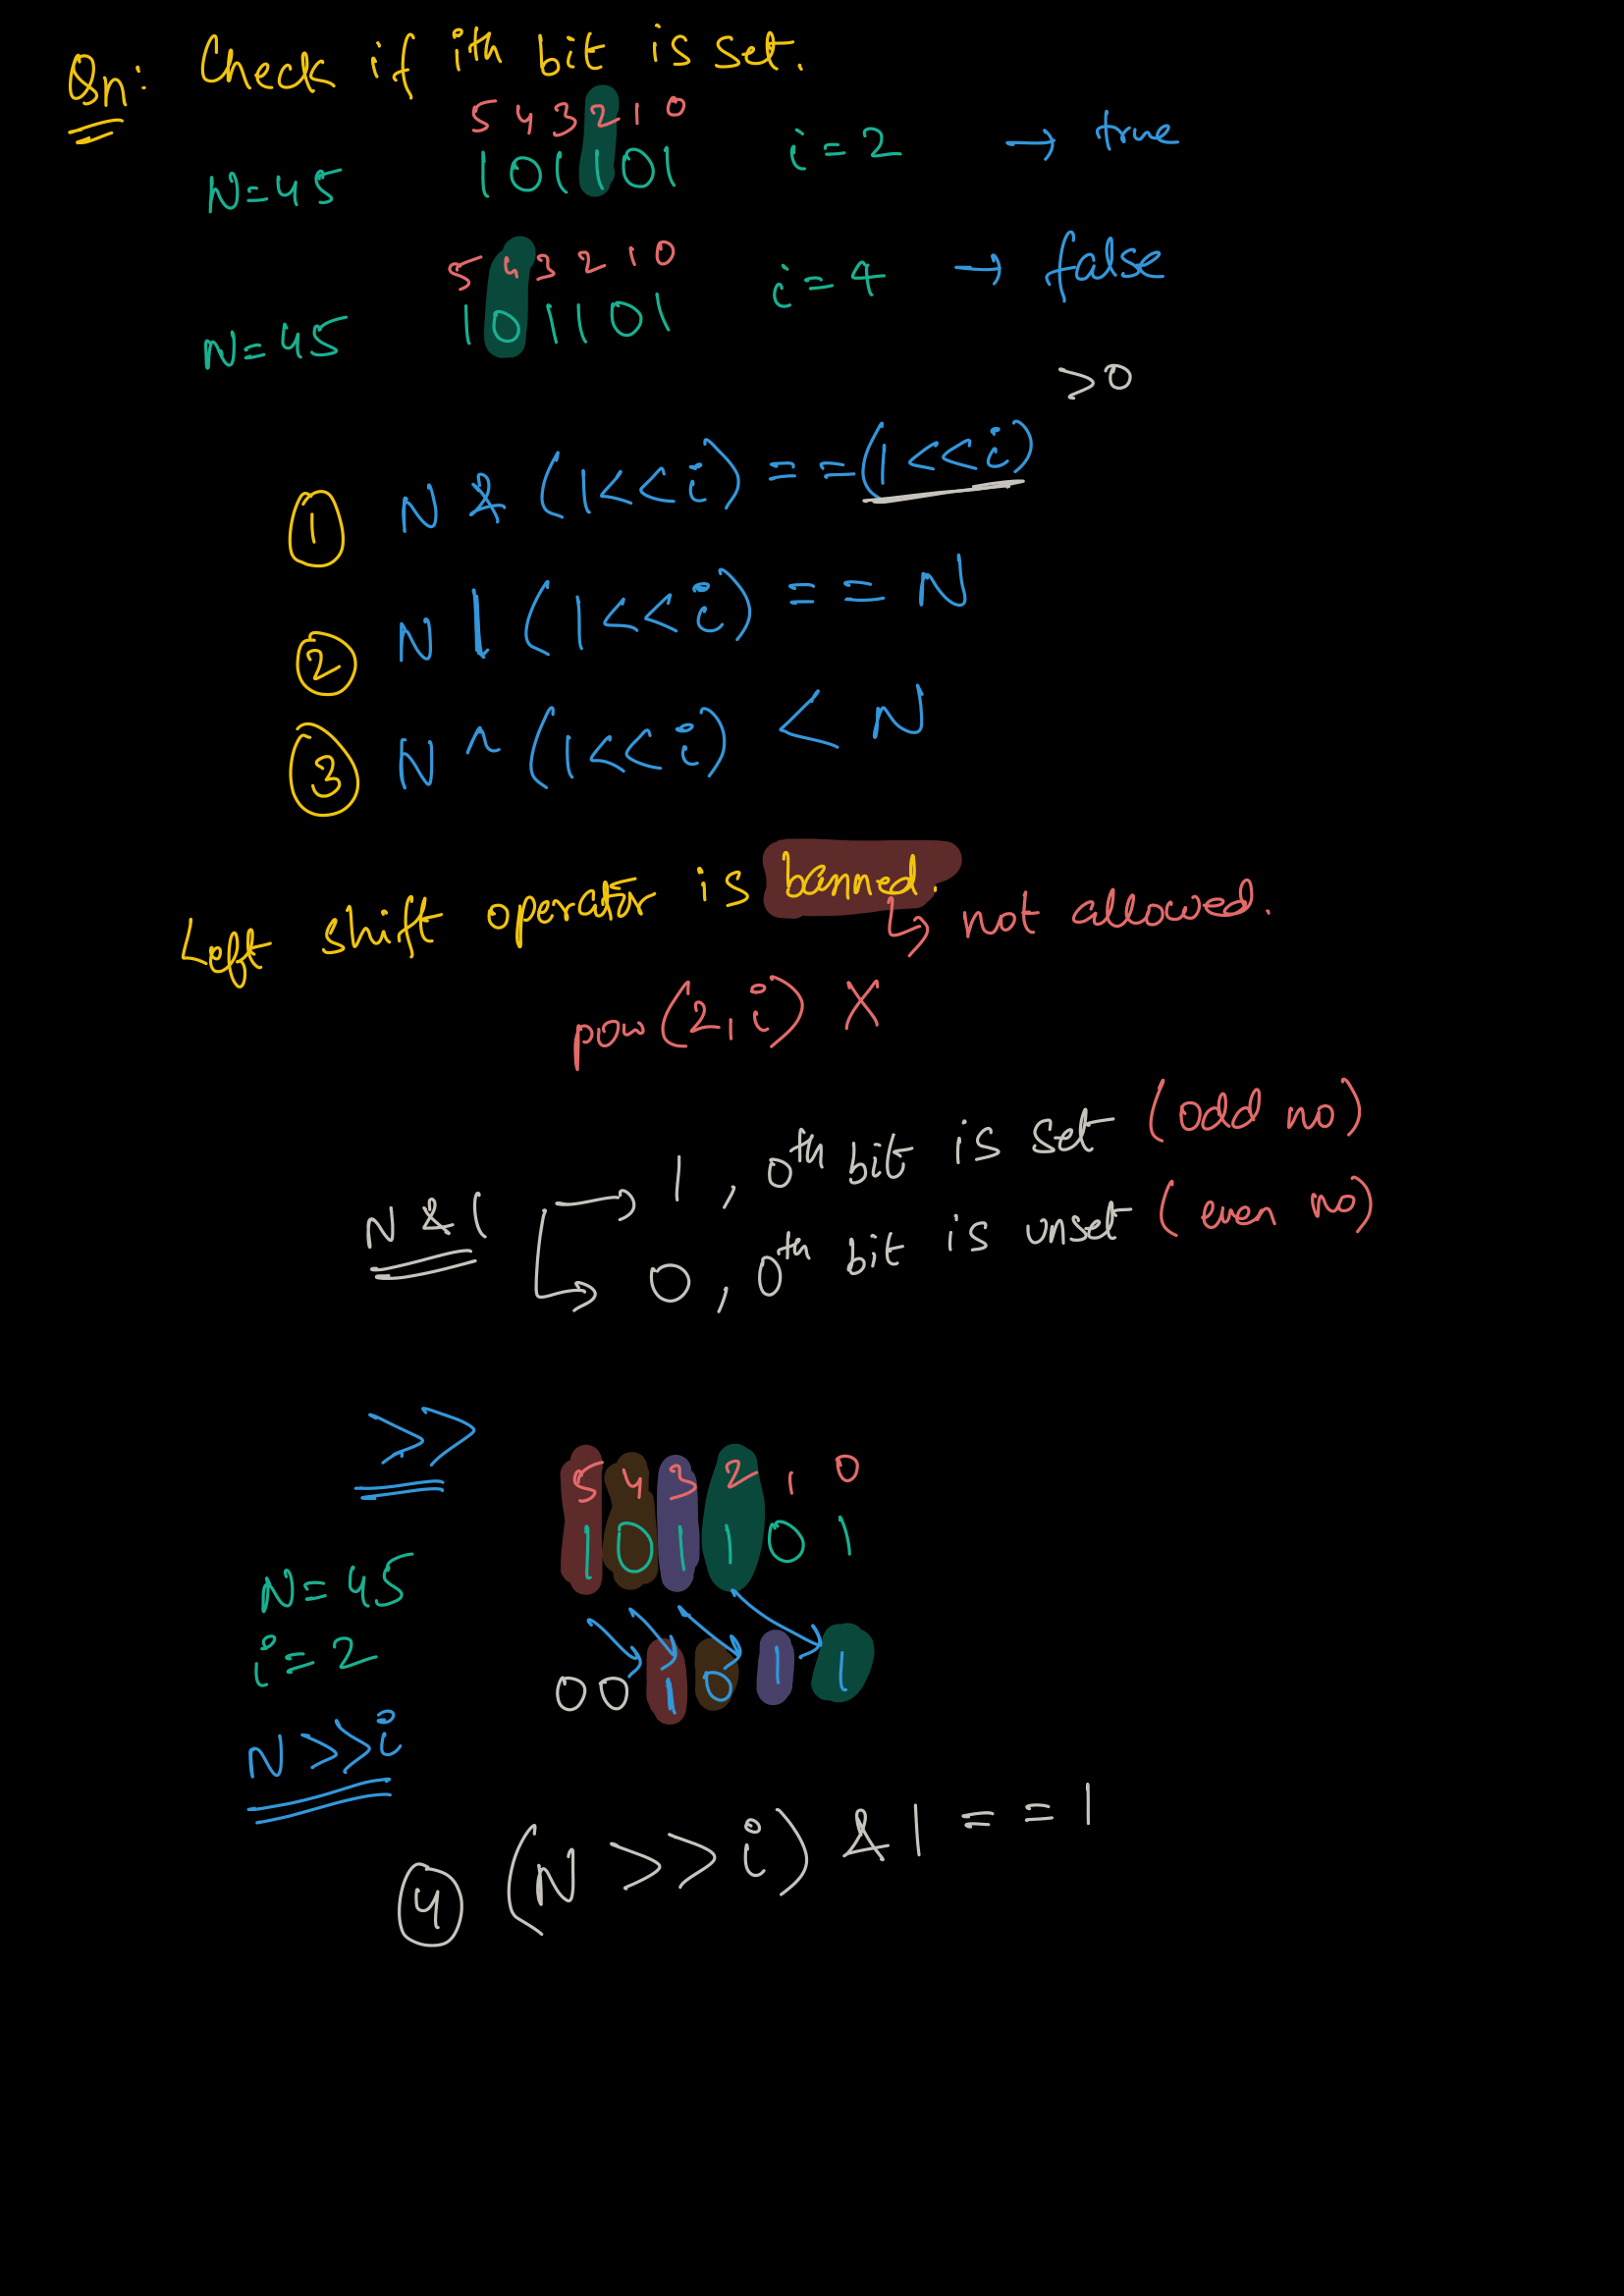 Qn: Check if ith bit is set.
5 4 3 2 1 0
N=45 101101 i=2 → true
5 4 3 2 1 0
N=45 101101 i=4 → false
>0
① N & (1<<i) == (1<<i)
② N | (1<<i) == N
③ N ^ (1<<i) < N
Left shift operator is banned.
↳ not allowed.
pow(2,i) X
N & 1 → 1, 0th bit is set (odd no)
↳ 0, 0th bit is unset (even no)
>>
5 4 3 2 1 0
1 0 1 1 0 1
N=45
i=2
0 0 1 0 1 1
N>>i
④ (N>>i) & 1 == 1